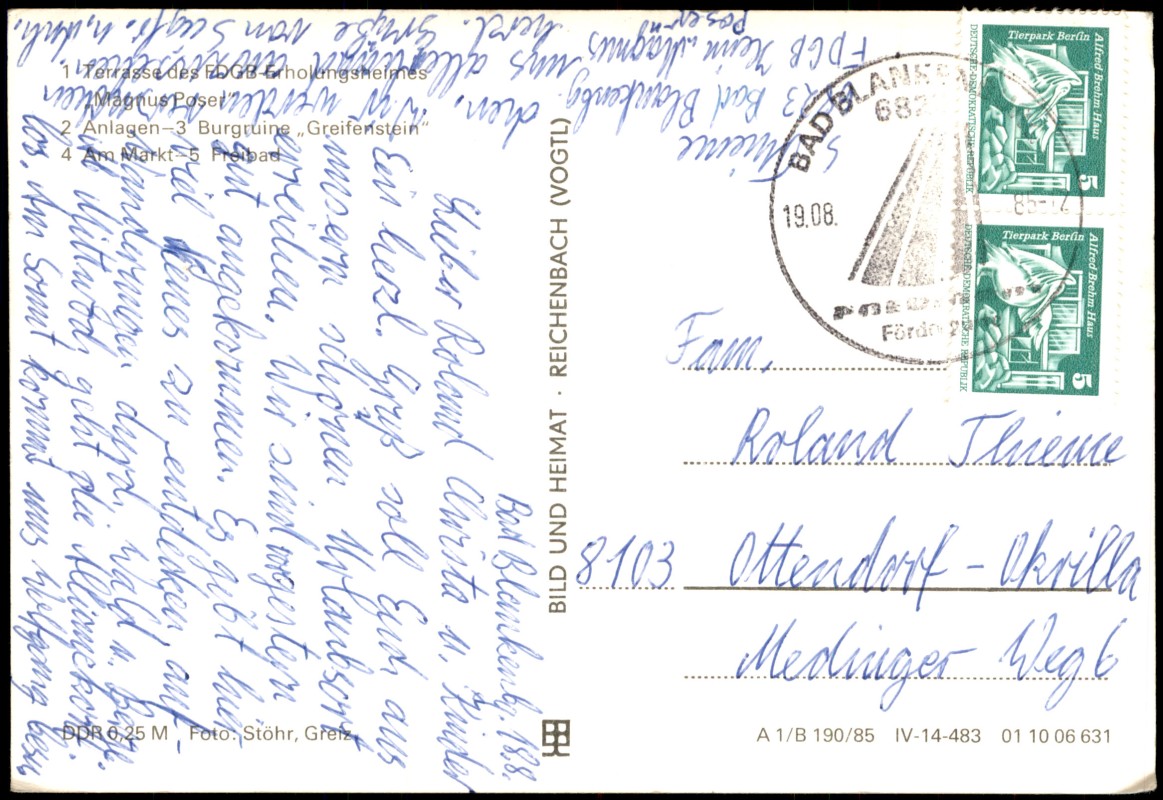 1 Terrasse des FDGB-Erholungsheimes
„Magnus Poser“
2 Anlagen–3 Burgruine „Greifenstein“
4 Am Markt–5 Freibad
Bad Blankenbg. 18.8.
Lieber Roland Christa u. Kinder
Ein herzl. Gruß soll Euch aus
unserm schönen Urlaubsort
erreichen. Wir sind vorgestern
gut angekommen. Es gibt hier
viel Neues zu entdecken, auf
Wanderungen durch Wald u.
Ab Mittwoch geht die
los. Am Sonnt. kommt uns Wolfgang
werden
uns allen
herzl. Grüße von
FDGB Heim „Magnus
Poser“
Bad Blankenbg.
BILD UND HEIMAT · REICHENBACH (VOGTL)
DDR 0,25 M Foto: Stöhr, Greiz
BAD BLANKEN
682
19.08.
Förde
Tierpark Berlin
Alfred Brehm Haus
DEUTSCHE DEMOKRATISCHE REPUBLIK
5
Tierpark Berlin
Alfred Brehm Haus
DEUTSCHE DEMOKRATISCHE REPUBLIK
5
Fam.
Roland Thieme
8103 Ottendorf - Okrilla
Medinger Weg 6
A 1/B 190/85 IV-14-483 01 10 06 631